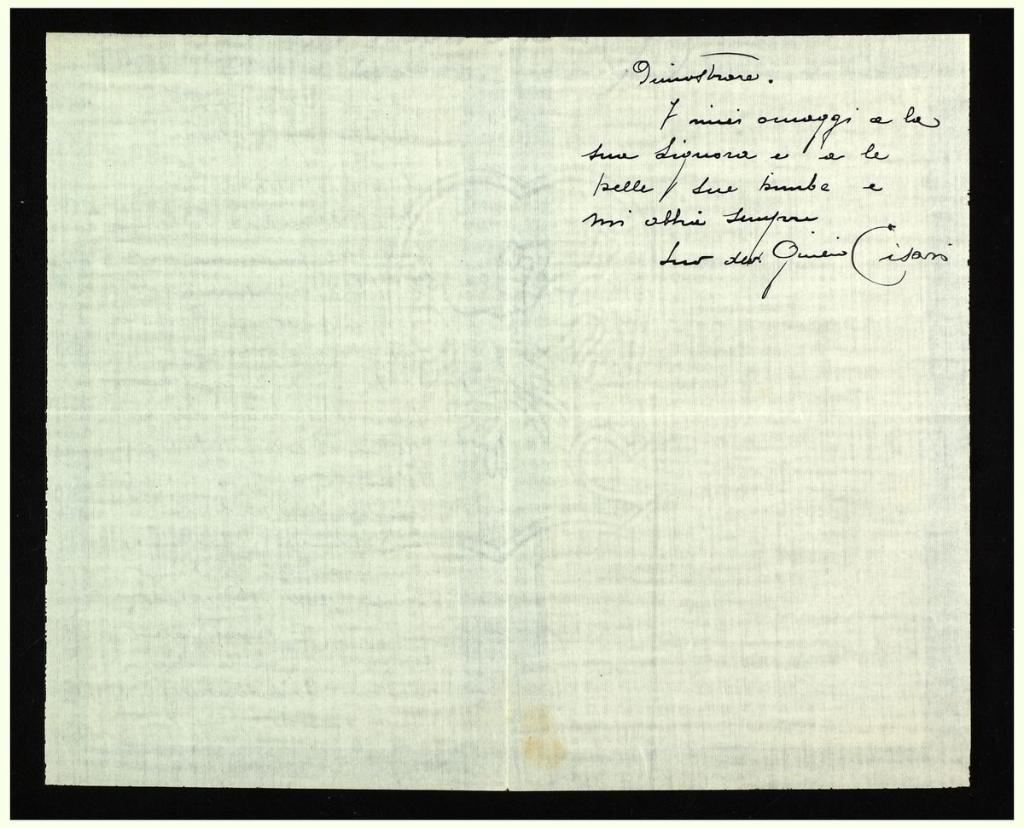 Dimostrare.
I miei omaggi a la
sua Signora e a le
belle sue bimbe e
mi abbia sempre
suo dev Giulio Cisari